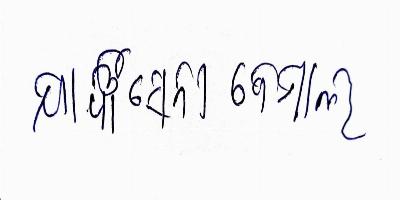 ଯାଜ୍ଞସେନୀ ବେମାଲ